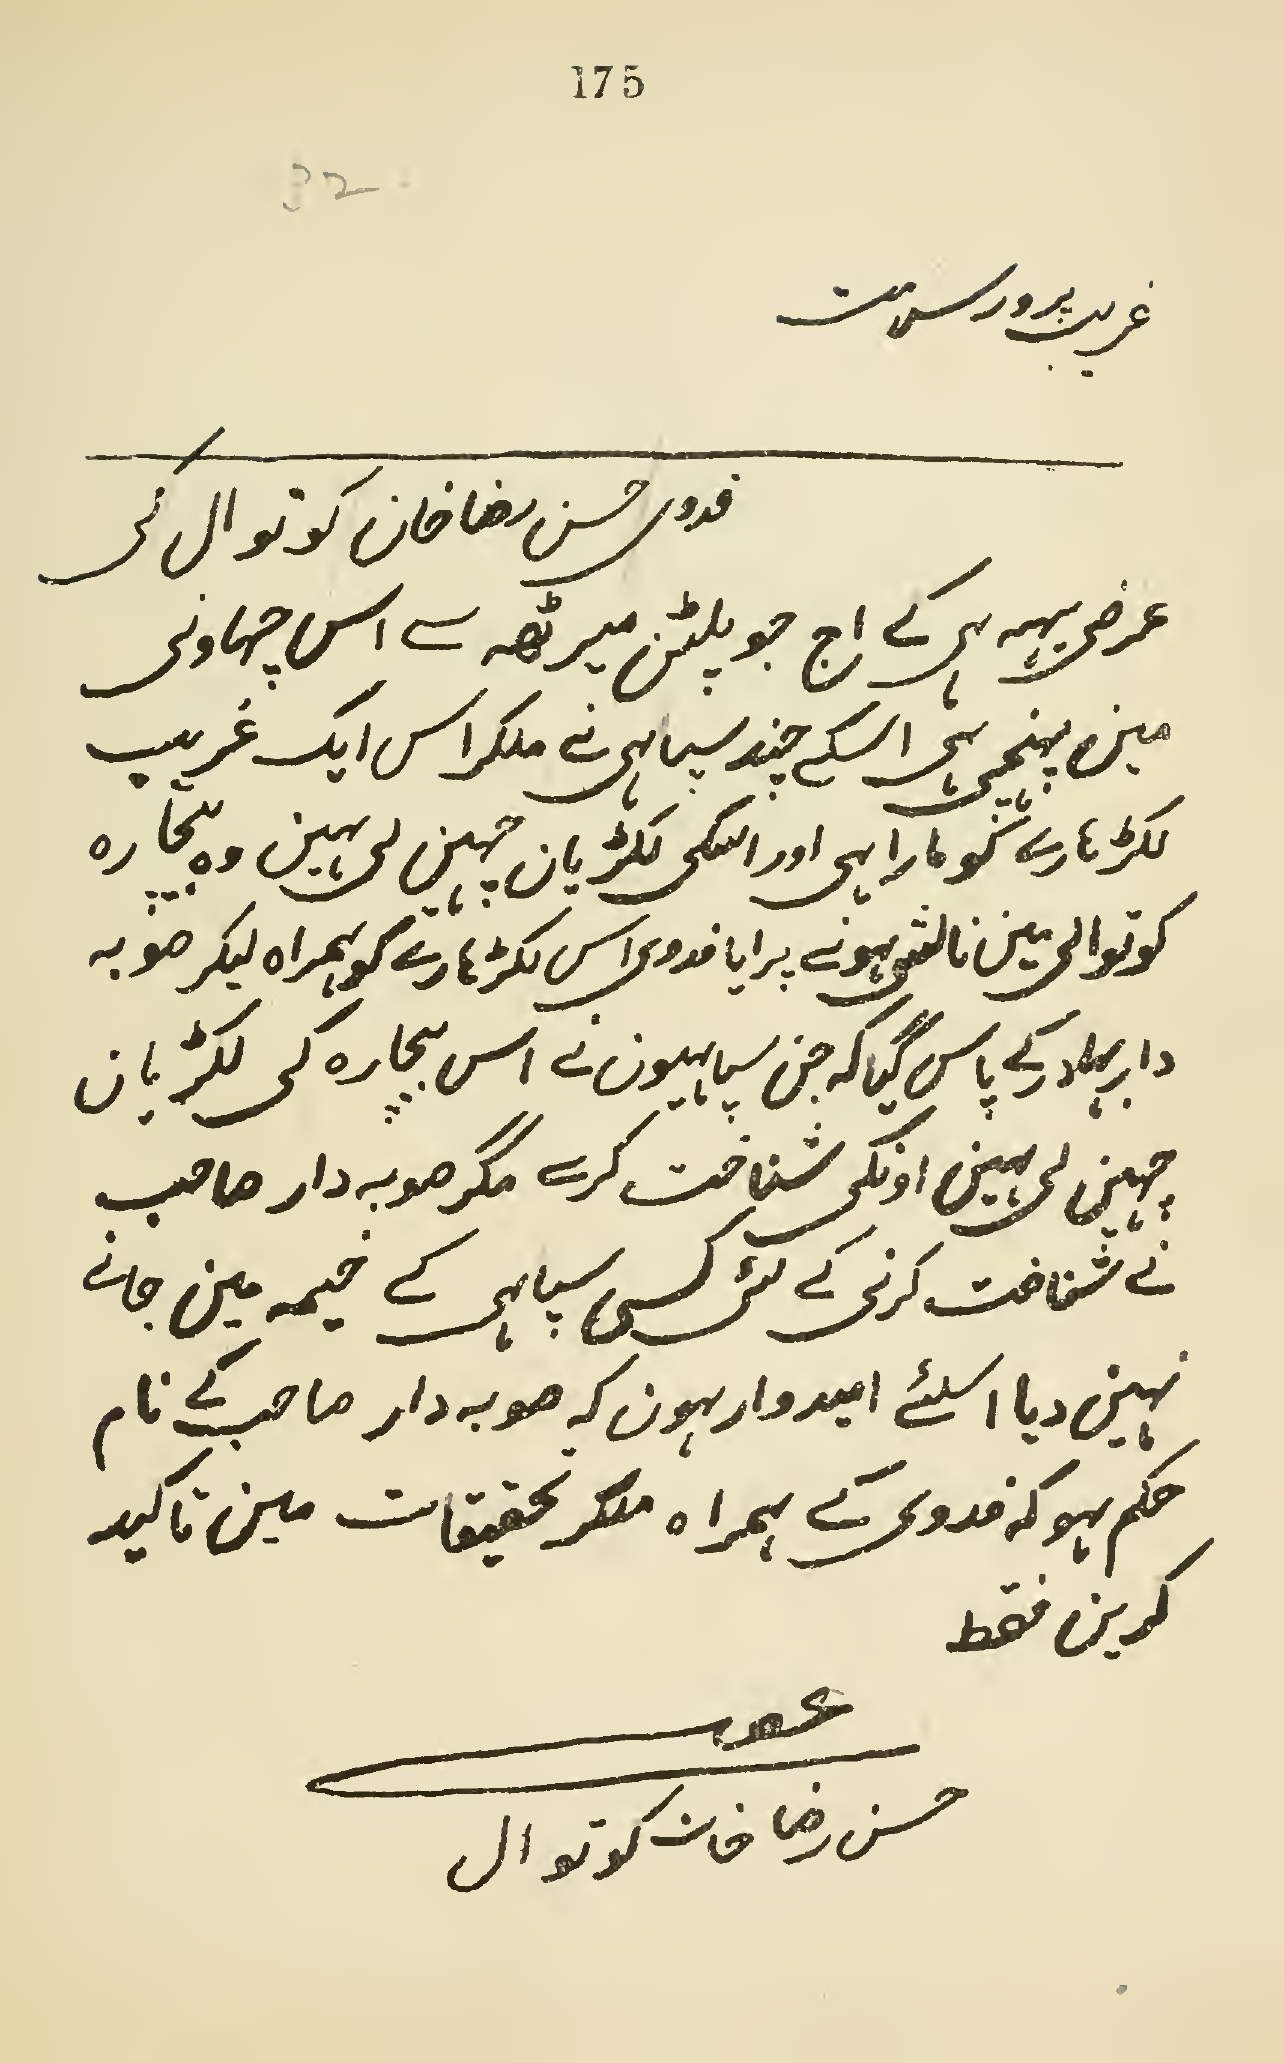 175
32
غریب پرور سلامت
فدوی حسن رضا خان کوتوال کی
عرضی یہہ ہی کے اج جو پلٹن میرٹھہ سے اس چہاونی
مین پہنچی ہی اسکے چند سپاہی نے ملکر اس ایک غریب
لکڑہارے کو مارا ہی اور اسکی لکڑیان چہین لی ہین وہ بیچارہ
کوتوالی مین نالشی ہونے پر ایا فدوی اس لکڑہارے کو ہمراہ لیکر صوبہ
دار بہادر کے پاس گیا کہ جن سپاہیون نے اس بیچارہ کی لکڑیان
چہین لی ہین اونکی شناخت کرے مگر صوبہ دار صاحب
نے شناخت کرنی کے لئی کسی سپاہی کے خیمہ مین جانے
نہین دیا اسلئے امیدوار ہون کہ صوبہ دار صاحب کے نام
حکم ہو کہ فدوی کے ہمراہ ملکر تحقیقات مین تاکید
کرین فقط
حسن رضا خان کوتوال